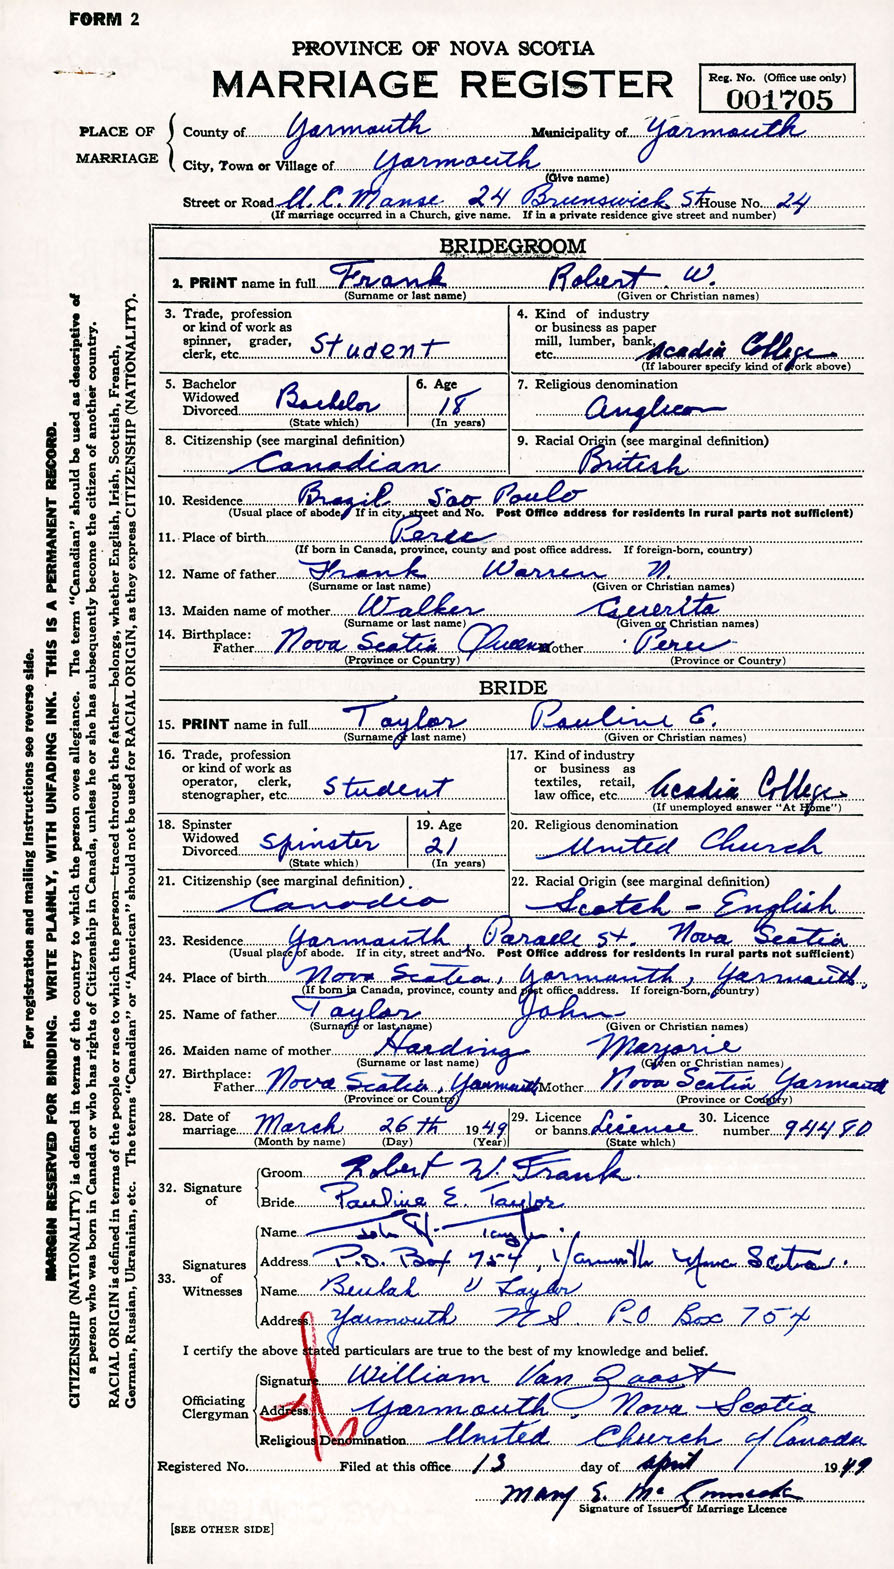 FORM 2
PROVINCE OF NOVA SCOTIA
MARRIAGE REGISTER
Reg. No. (Office use only)
001705
PLACE OF MARRIAGE
County of Yarmouth Municipality of Yarmouth
City, Town or Village of Yarmouth
(Give name)
Street or Road U.C. Manse 24 Brunswick St House No. 24
(If marriage occurred in a Church, give name. If in a private residence give street and number)
BRIDEGROOM
2. PRINT name in full Frank Robert W.
(Surname or last name) (Given or Christian names)
3. Trade, profession or kind of work as spinner, grader, clerk, etc. Student
4. Kind of industry or business as paper mill, lumber, bank, etc. Acadia College
(If labourer specify kind of work above)
5. Bachelor Widowed Divorced Bachelor
(State which)
6. Age 18
(In years)
7. Religious denomination
Anglican
8. Citizenship (see marginal definition)
Canadian
9. Racial Origin (see marginal definition)
British
10. Residence Brazil Sao Paulo
(Usual place of abode. If in city, street and No. Post Office address for residents in rural parts not sufficient)
11. Place of birth Peru
(If born in Canada, province, county and post office address. If foreign-born, country)
12. Name of father Frank Warren N.
(Surname or last name) (Given or Christian names)
13. Maiden name of mother Walker
(Surname or last name) (Given or Christian names)
14. Birthplace:
Father Nova Scotia Queens Mother Peru
(Province or Country) (Province or Country)
BRIDE
15. PRINT name in full Taylor Pauline E.
(Surname or last name) (Given or Christian names)
16. Trade, profession or kind of work as operator, clerk, stenographer, etc. Student
17. Kind of industry or business as textiles, retail, law office, etc. Acadia College
(If unemployed answer "At Home")
18. Spinster Widowed Divorced Spinster
(State which)
19. Age 21
(In years)
20. Religious denomination
United Church
21. Citizenship (see marginal definition)
Canadia
22. Racial Origin (see marginal definition)
Scotch - English
23. Residence Yarmouth St. Nova Scotia
(Usual place of abode. If in city, street and No. Post Office address for residents in rural parts not sufficient)
24. Place of birth Nova Scotia, Yarmouth, Yarmouth,
(If born in Canada, province, county and post office address. If foreign-born, country)
25. Name of father Taylor John
(Surname or last name) (Given or Christian names)
26. Maiden name of mother Harding Marjorie
(Surname or last name) (Given or Christian names)
27. Birthplace:
Father Nova Scotia, Yarmouth Mother Nova Scotia Yarmouth
(Province or Country) (Province or Country)
28. Date of marriage March 26th 1949
(Month by name) (Day) (Year)
29. Licence or banns Licence
(State which)
30. Licence number 94480
32. Signature of
Groom Robert W. Frank.
Bride Pauline E. Taylor
33. Signatures of Witnesses
Name John H. Taylor.
Address P.O. Box 754, Yarmouth Nova Scotia.
Name Beulah V Taylor
Address Yarmouth N.S. P.O Box 754
I certify the above stated particulars are true to the best of my knowledge and belief.
Officiating Clergyman
Signature William Van Zoost
Address Yarmouth, Nova Scotia
Religious Denomination United Church of Canada
Registered No. Filed at this office 13 day of April 1949
Mary E. McCormick
Signature of Issuer of Marriage Licence
[SEE OTHER SIDE]
For registration and mailing instructions see reverse side.
MARGIN RESERVED FOR BINDING. WRITE PLAINLY, WITH UNFADING INK. THIS IS A PERMANENT RECORD.
CITIZENSHIP (NATIONALITY) is defined in terms of the country to which the person owes allegiance. The term "Canadian" should be used as descriptive of
a person who was born in Canada or who has rights of Citizenship in Canada, unless he or she has subsequently become the citizen of another country.
RACIAL ORIGIN is defined in terms of the people or race to which the person—traced through the father—belongs, whether English, Irish, Scottish, French,
German, Russian, Ukrainian, etc. The terms "Canadian" or "American" should not be used for RACIAL ORIGIN, as they express CITIZENSHIP (NATIONALITY).